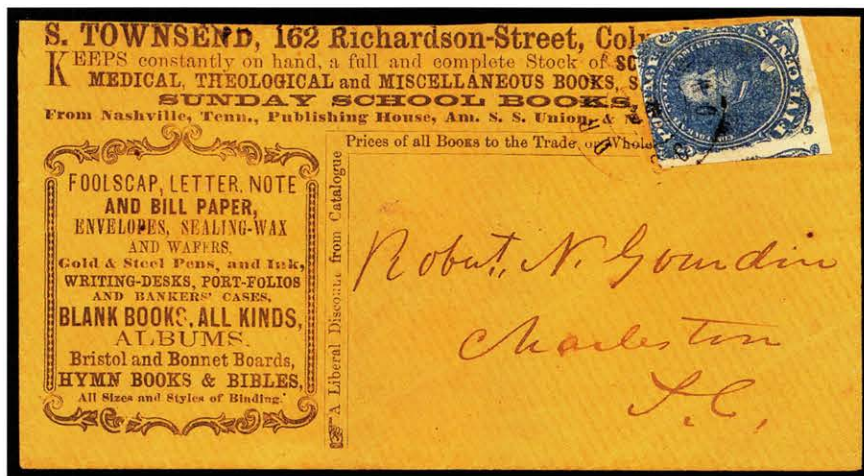 S. TOWNSEND, 162 Richardson-Street,
KEEPS constantly on hand, a full and complete Stock of
MEDICAL, THEOLOGICAL and MISCELLANEOUS BOOKS,
SUNDAY SCHOOL BOOKS,
From Nashville, Tenn., Publishing House, Am. S. S. Union, &
Prices of all BOOKS to the Trade, or
A Liberal Discount from Catalogue
FOOLSCAP, LETTER, NOTE
AND BILL PAPER,
ENVELOPES, SEALING-WAX
AND WAFERS,
Gold & Steel Pens, and Ink,
WRITING-DESKS, PORT-FOLIOS
AND BANKERS' CASES,
BLANK BOOKS, ALL KINDS,
ALBUMS.
Bristol and Bonnet Boards,
HYMN BOOKS & BIBLES,
All Sizes and Styles of Binding.
Robert N. Gourdin
Charleston
S.C.
POSTAGE
FIVE CENTS